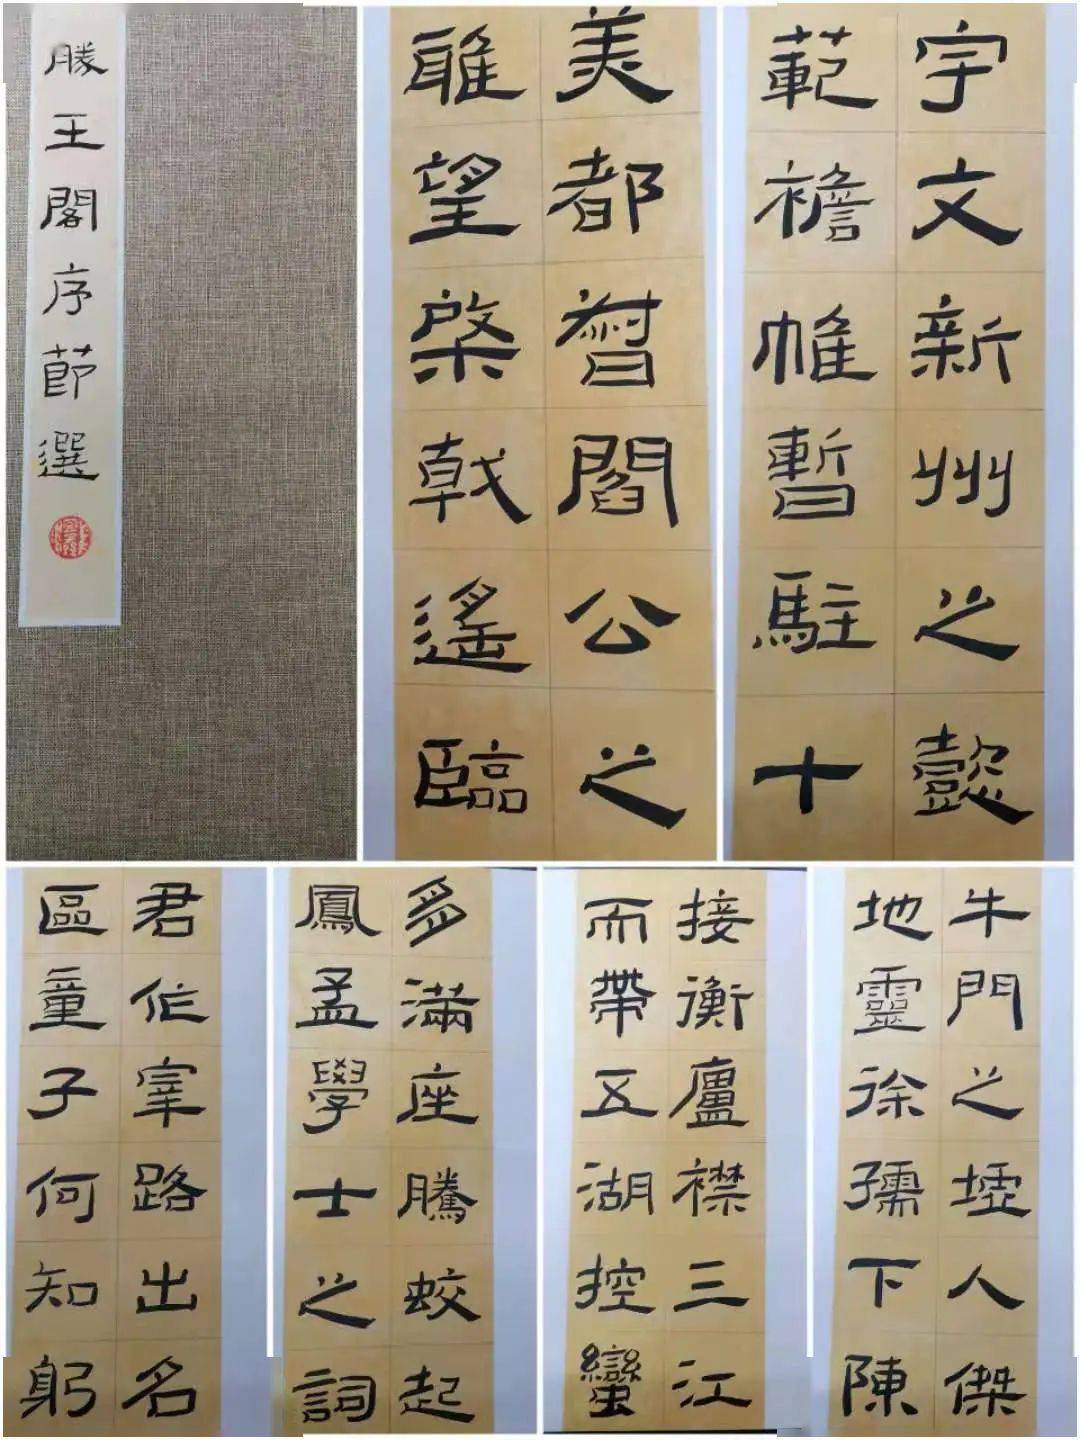 滕王閣序節選
美都督閻公之
雅望棨戟遙臨
宇文新州之懿
範襜帷暫駐十
君作宰路出名
區童子何知躬
多滿座騰蛟起
鳳孟學士之詞
接衡廬襟三江
而帶五湖控蠻
牛門之墟人傑
地靈徐孺下陳